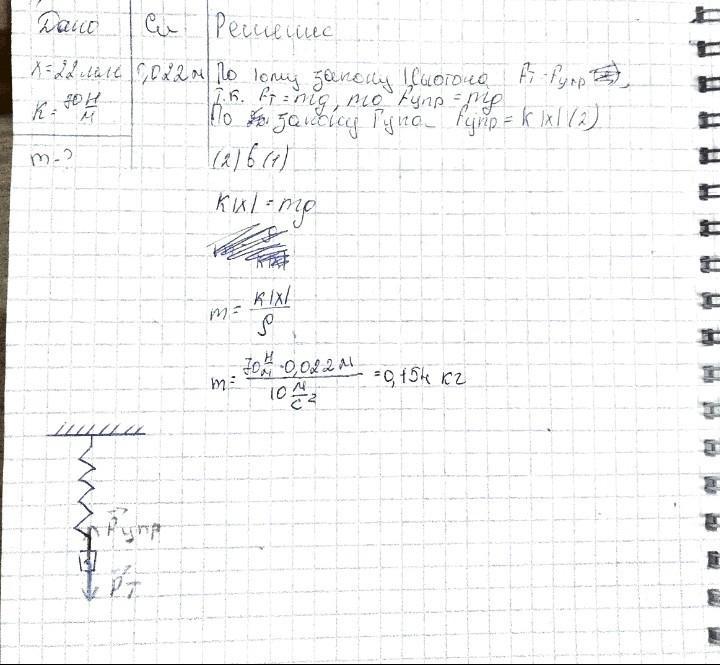 Дано Си Решение
x = 22 мм 0,022 м По 1ому закону Ньютона Fт = Fупр
k = 70 Н/м Т.к. Fт = mg, то Fупр = mg
По закону Гука Fупр = k|x| (2)
m - ? (2) в (1)
k|x| = mg
m = k|x| / g
m = 70 Н/м · 0,022 м / 10 м/с² = 0,154 кг
Fупр
Fт